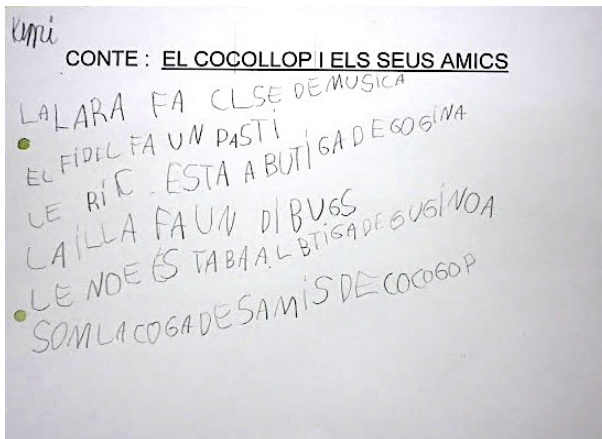 Kimi
CONTE : EL COCOLLOP I ELS SEUS AMICS
LA LARA FA CLSE DE MUSICA
EL FIDEL FA UN PASTÍ
LE RÍC . ESTA A BUTÍGA DE GOGÍNA
LA ÍLLA FA UN DIBUGS
LE NOE ÉS TABA A L BTIGA DE GUGÍNOA
SOM LA COGA DES AMÍS DE COCOGOP